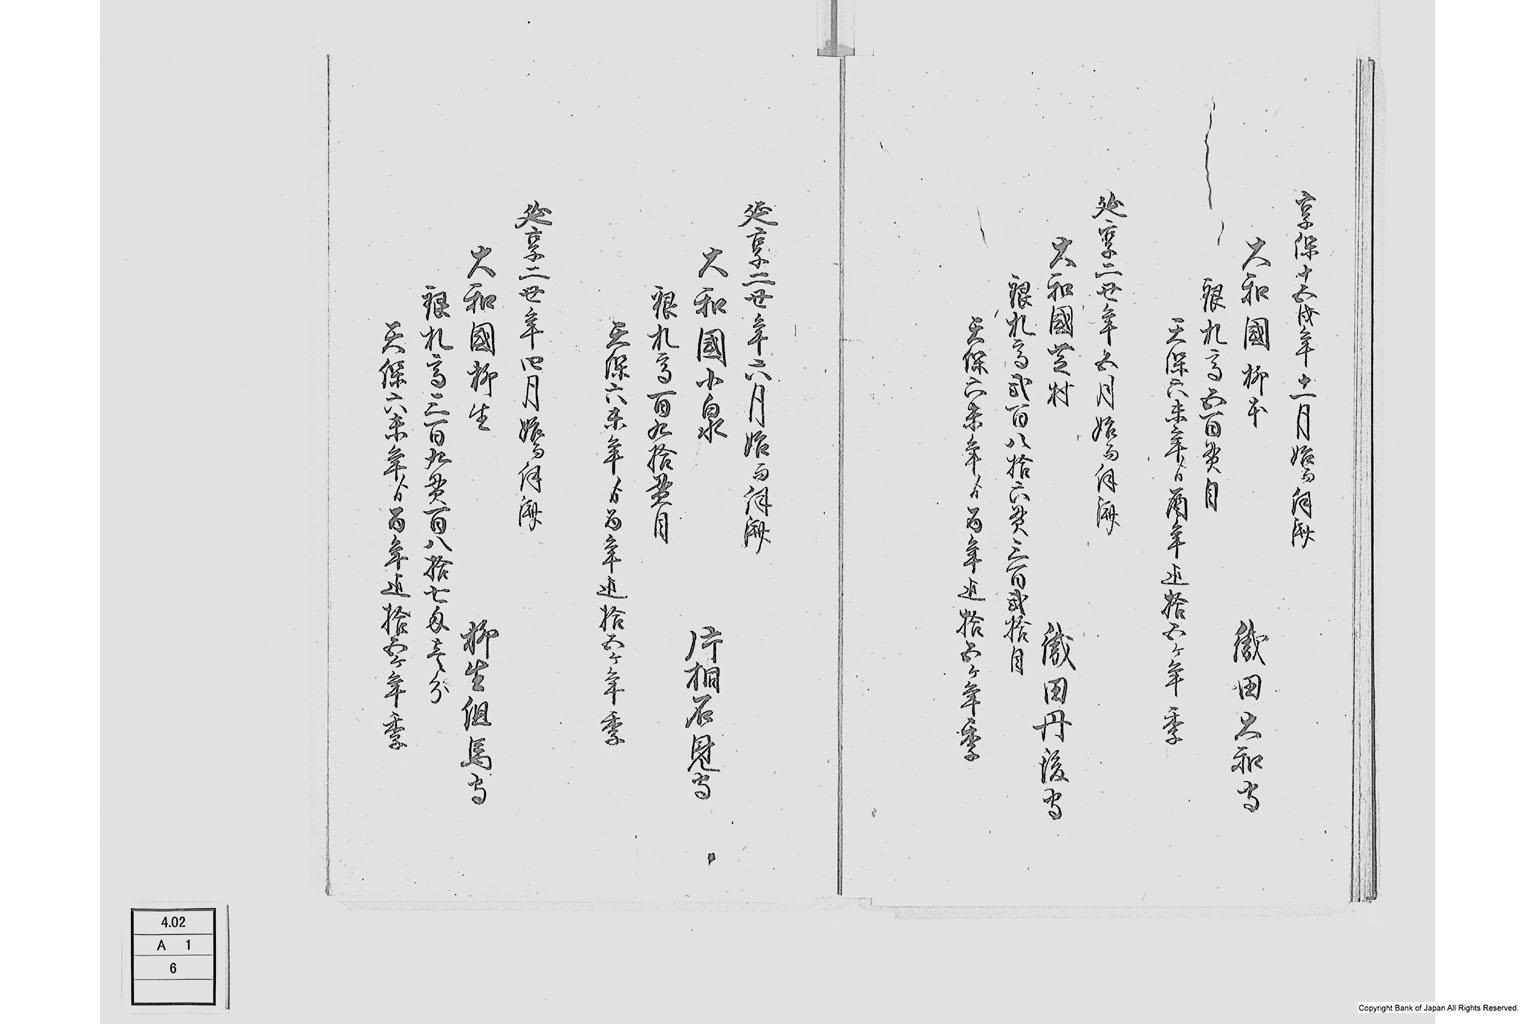 享保十五戌年十一月始而伺済
大和國柳本 織田大和守
銀札高五百貫目
天保六未年ゟ酉年迄拾五ヶ年季
延享二丑年五月始而伺済
大和國芝村 織田丹後守
銀札高弐百八拾六貫三百弐拾目
天保六未年ゟ酉年迄拾五ヶ年季
延享二丑年六月始而伺済
大和國小泉 片桐石見守
銀札高百九拾貫目
天保六未年ゟ酉年迄拾五ヶ年季
延享二丑年四月始而伺済
大和國柳生 柳生但馬守
銀札高三百九貫百八拾七匁壱分
天保六未年ゟ酉年迄拾五ヶ年季
4.02
A 1
6
Copyright Bank of Japan All Rights Reserved.